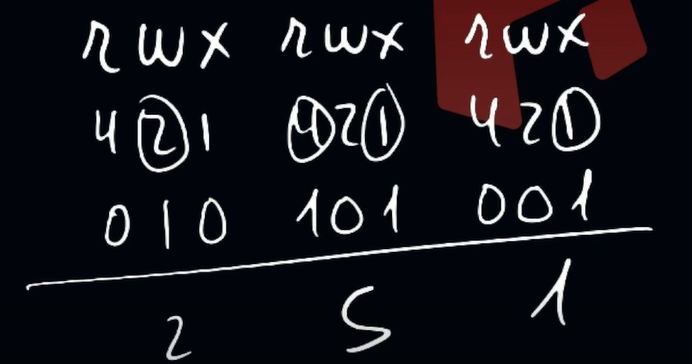 rwx rwx rwx
421 421 421
010 101 001
2 5 1